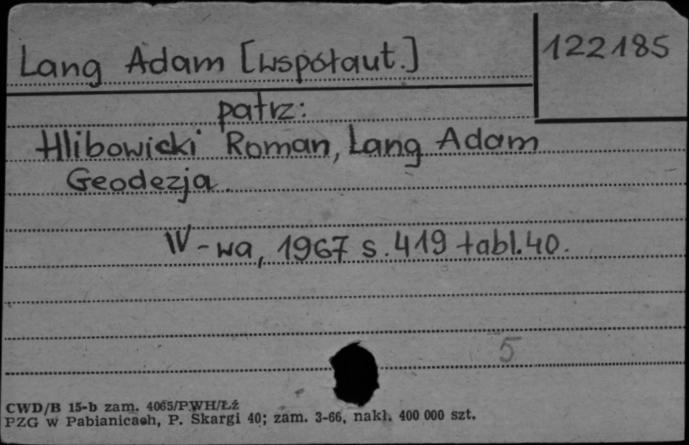 Lang Adam [współaut.]
122185
patrz:
Hlibowicki Roman, Lang Adam
Geodezja.
W-wa, 1967 s. 419 tabl. 40.
5
CWD/B 15-b zam. 4065/PWH/Łż
PZG w Pabianicach, P. Skargi 40; zam. 3-66, nakł. 400 000 szt.